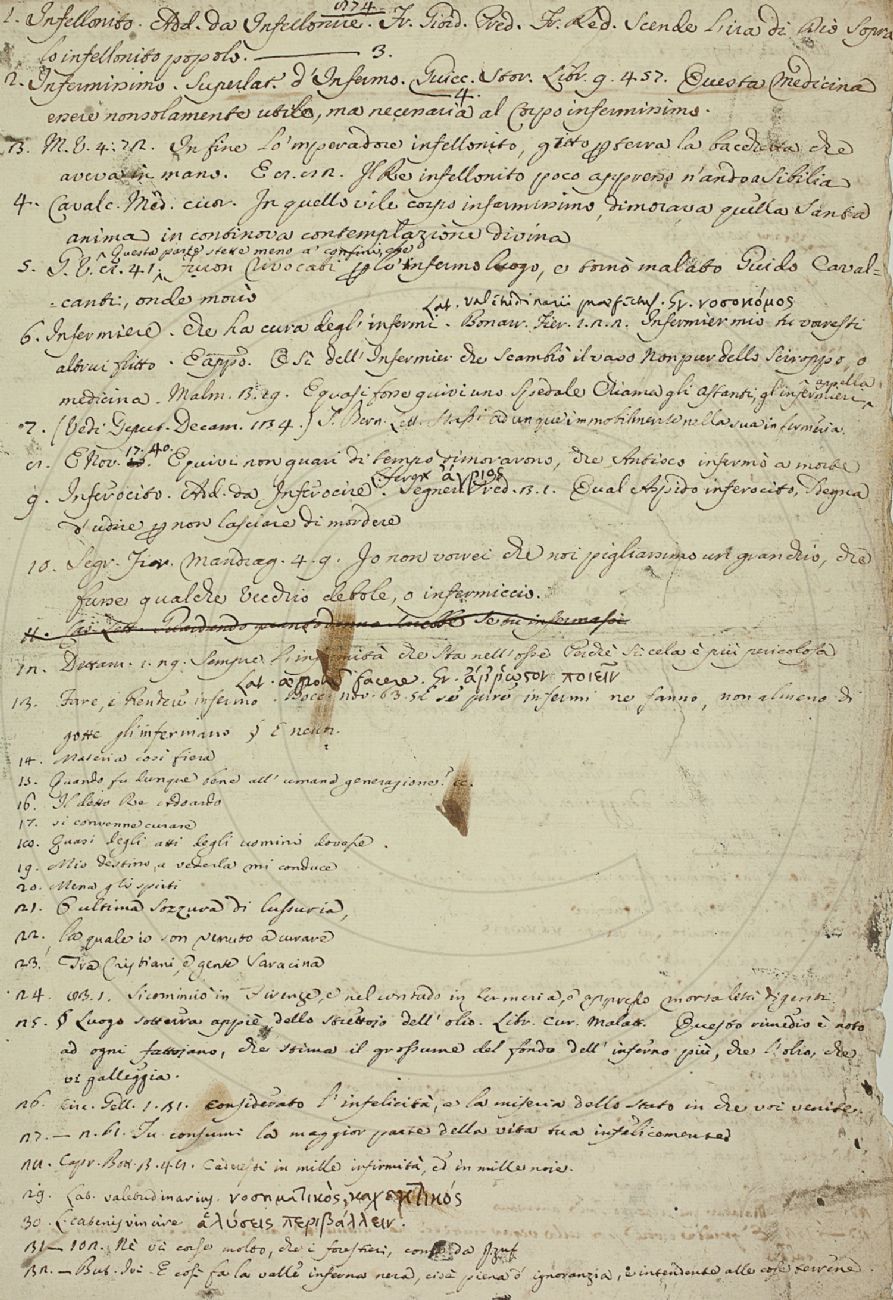 1774.
1. Infellonito. Add. da Infellonire. Fr. Giord. Pred. Fr. Red. Scende l'ira di Dio sopra
lo infellonito popolo. 3.
2. Infermissimo. Superlat. d'Infermo. Guicc. Stor. Libr. 9. 457. Questa medicina
essere non solamente utile, ma necessaria al Corpo infermissimo.
4.
3. M. V. 4. 72. In fine lo 'mperadore infellonito, gitto p terra la bacchetta che
aveva in mano. E Il Re infellonito poco appresso n'andò a Sibilia
4. Cavalc. Med. cuor. In quello vile corpo infermissimo, dimorava quella Santa
anima in continova contemplazione divina
Questa parte stette meno a' confini, che
5. G. V. 8. 41. furon rivocati p lo 'nfermo luogo, e tornò malato Guido Caval-
-canti, onde morìo
Lat. valetudinarii praefectus. Gr. νοσοκόμος
6. Infermiere. che ha cura degl' infermi. Bonarr. Fier. 1. 2. 2. Infermier mio tu varesti
altrui flitto. E appo. E sì dell' Infermier che scambiò il vaso Non pur dello sciroppo, o
medicina. Malm. 3. 29. E quasi fosse quivi uno spedale Chiama gli astanti, gl' infermieri appella
7. (Vedi Deput. Decam. 134.) S. Bern. Lett. Stassi adunque immobilmente nella sua infermeria
8. E Nov. 17. 40. E quivi non guari di tempo dimorarono, che Antioco infermò a morte
9. Inferocito. Add. da Inferocire. Segner. Pred. 3. 1. Qual Aspido inferocito, Segna
d'udire p non lasciare di mordere
10. Segr. Fior. Mandrag. 4. 9. Io non vorrei che noi pigliassimo un granchio, che
fusse qualche Vecchio debole, o infermiccio.
11. Lett. se tu infermassi
12. Dittam. 1. 29. Sempre l'infermità che sta nell' osse Perchè si cela è più pericolosa
Lat. facere. Gr. ἄῤῥωστον ποιεῖν
13. Fare, e Rendere infermo. Bocc. nov. 63. 5. E se pure infermi ne fanno, non almeno di
gotte gl'infermano
14. Materia così fiera
15. Quando fu dunque bene all' umana generazione? ec.
16. Il detto Re Adoardo
17. si convenne curare
18. Quasi degli atti degli uomini dovesse.
19. Mio destino a vederla mi conduce
20. Mena gli spirti
21. O ultima sozzura di lussuria,
22. la quale io son venuto a curare
23. Tra Cristiani, e gente Saracina
24. Sicominciò in Firenze, e nel contado infermeria, e appresso mortalità di genti
25. § Luogo sotterra appiè dello strettojo dell' olio. Libr. cur. Malatt. Questo rimedio è noto
ad ogni fattojano, che stima il grossume del fondo dell' inferno più, che l'olio, che
vi galleggia.
26. Circ. Gell. 1. 31. Considerato l'infelicità, e la miseria dello stato in che voi venite.
27. — 2. 61. Tu consumi la maggior parte della vita tua infelicemente
28. Capr. Bott. 3. 48. Caderesti in mille infirmità, ed in mille noie.
29. Lat. valetudinarius. νοσηματικός, καχεκτικός
30. L. catenis vincire ἁλύσεις περιβάλλειν.
31 — 102. Nè vi corse molto, che i forestieri,
32. — But. Ivi. E così fa la valle inferna nera, cioè piena d' ignoranzia, e intendente alle cose terrene